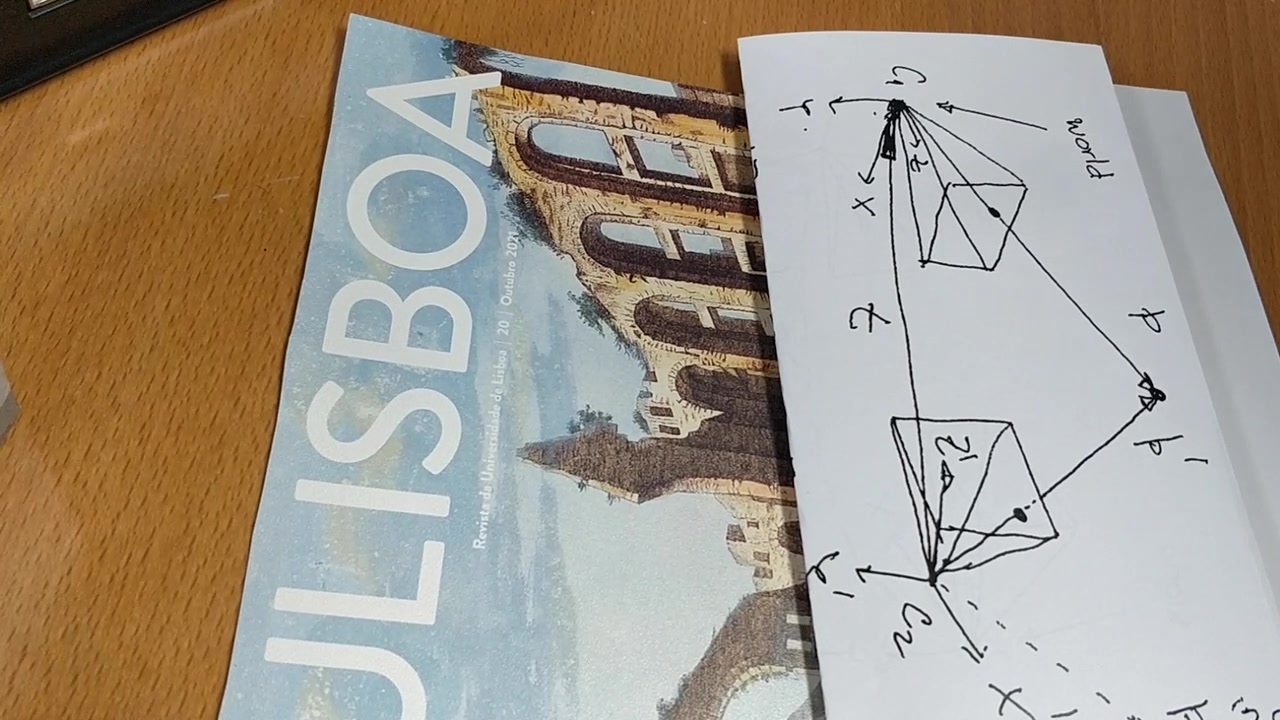 ULISBOA
Revista da Universidade de Lisboa | 20 | Outubro 2021
C1
world
Y
x
z
p
p'
z'
C2
X